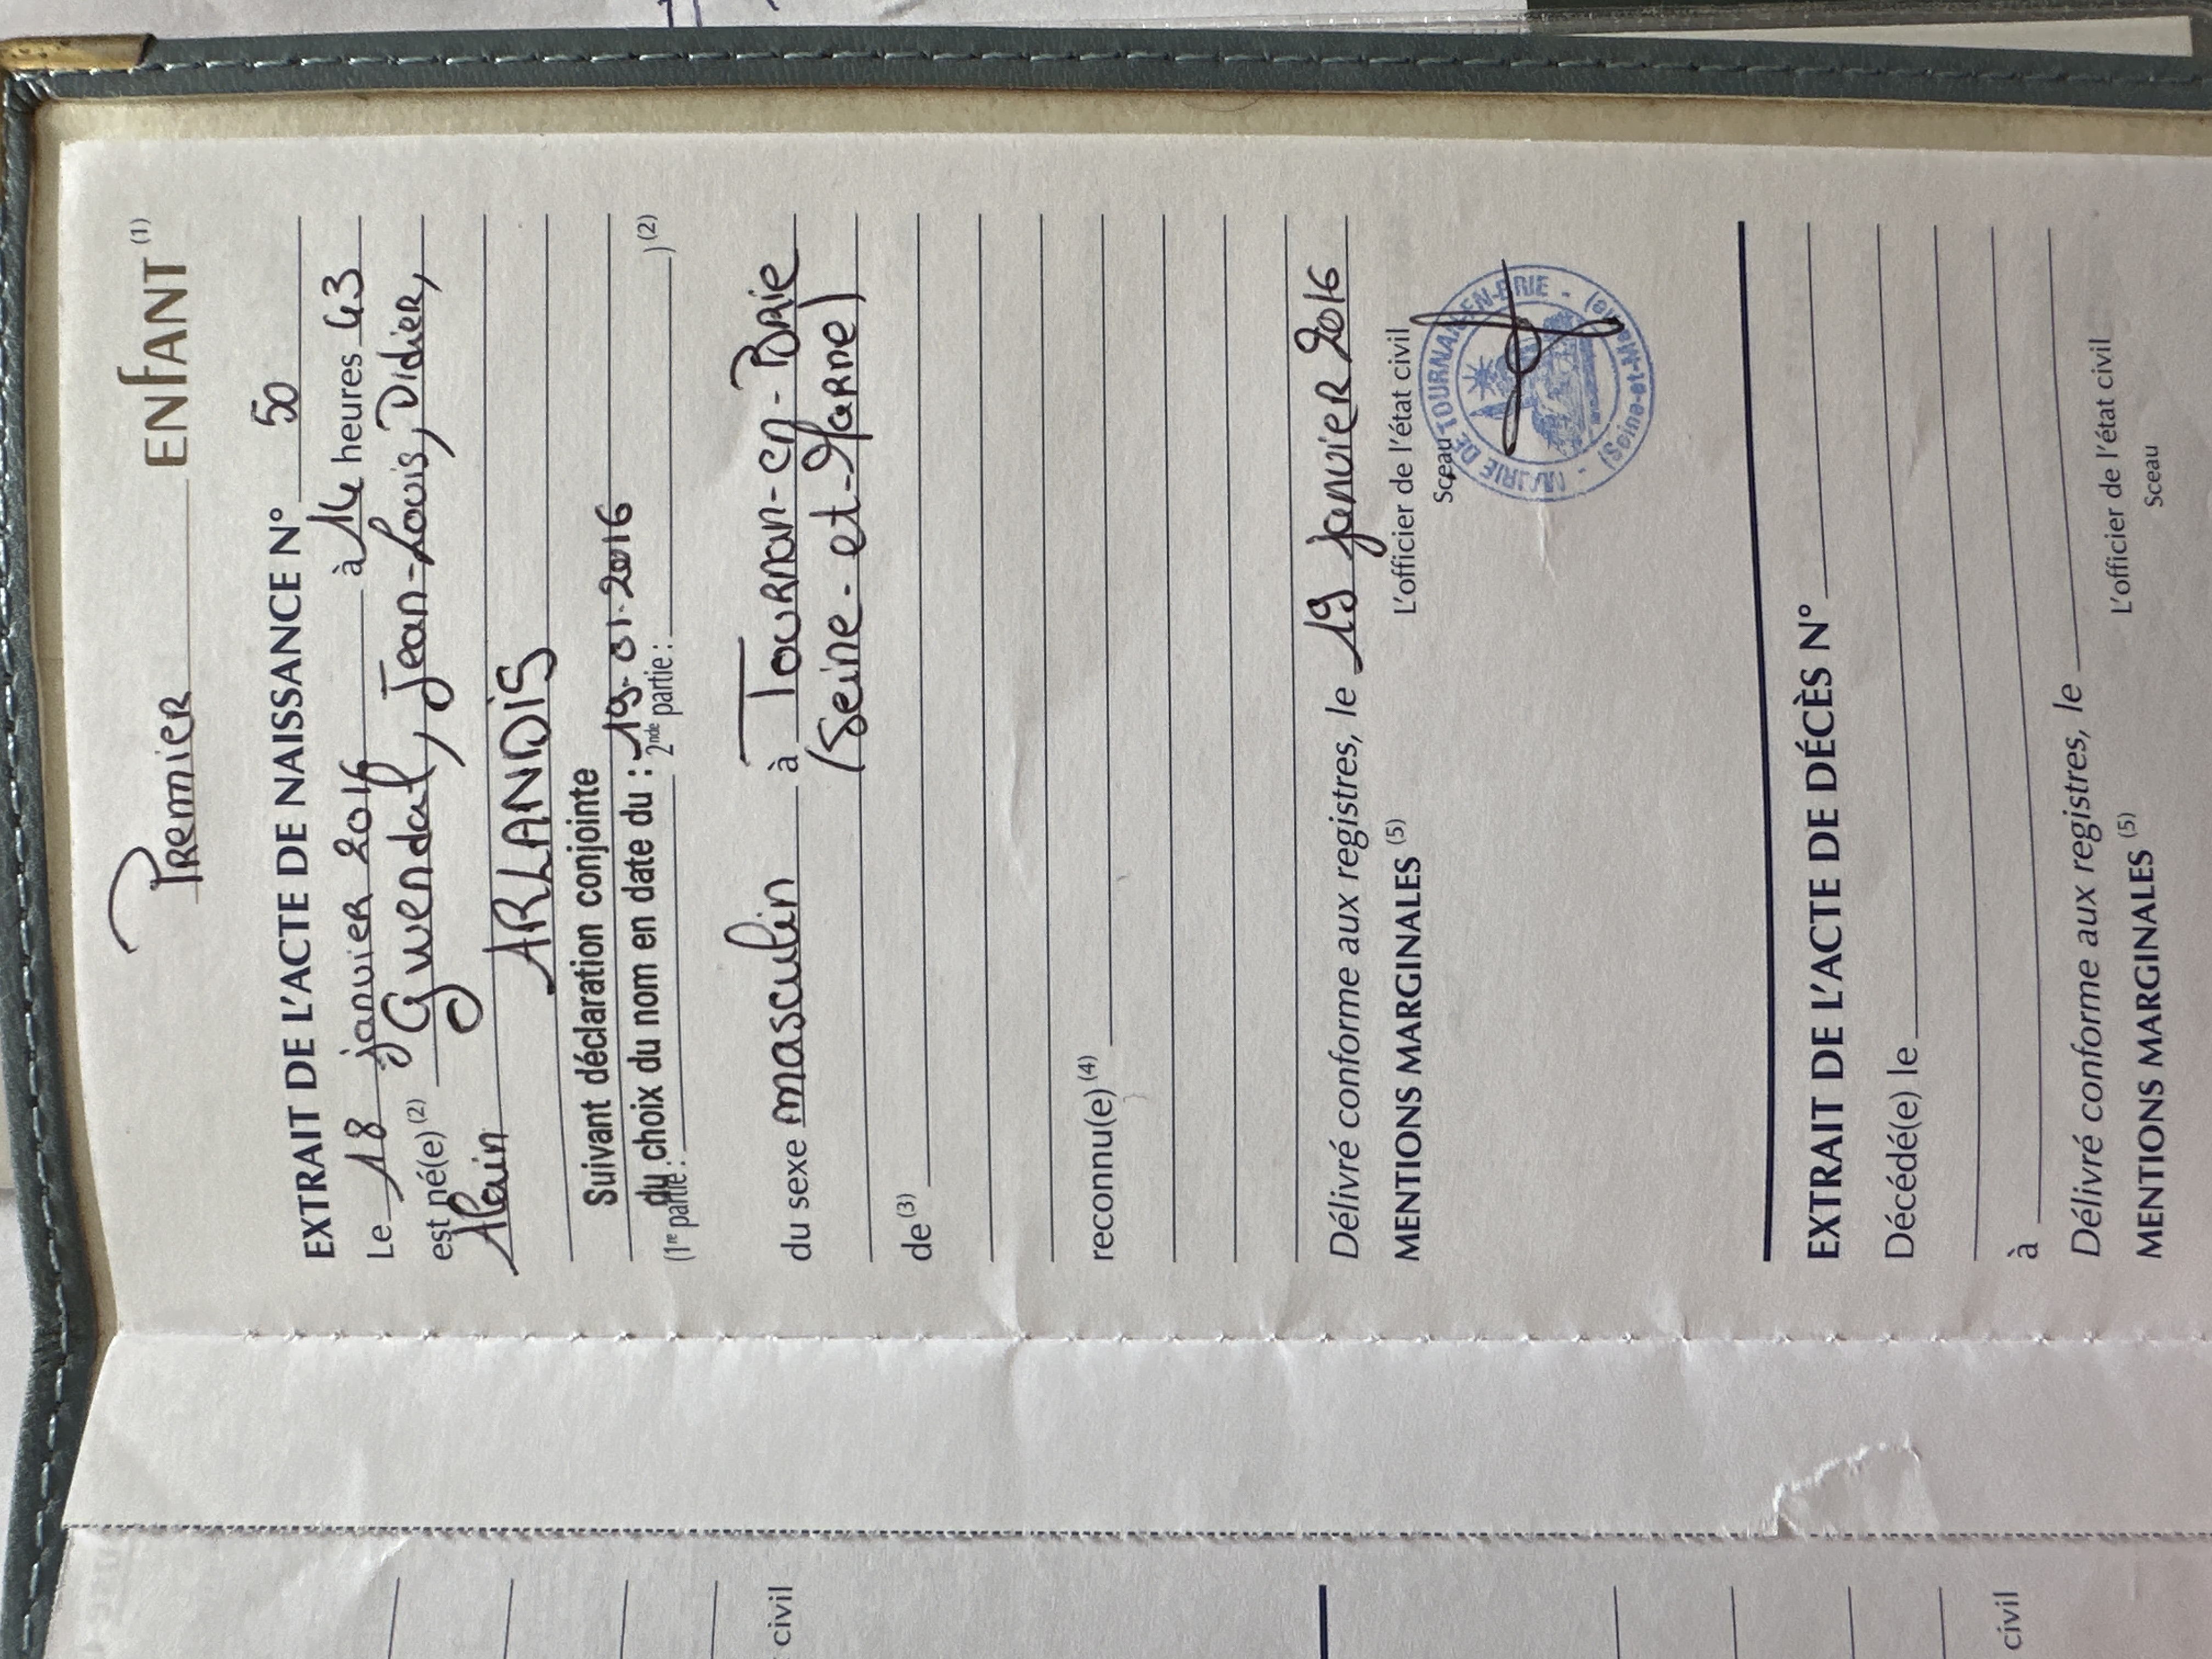 Premier ENFANT (1)
EXTRAIT DE L'ACTE DE NAISSANCE N° 50
Le 18 janvier 2016 à 14 heures 43
est né(e) (2) Gwendal, Jean-Louis, Didier,
Alain
ARLANDIS
Suivant déclaration conjointe
du choix du nom en date du : 19-01-2016
(1re partie : 2nde partie : ) (2)
du sexe masculin à Tournan-en-Brie
(Seine-et-Marne)
de (3)
reconnu(e) (4)
Délivré conforme aux registres, le 19 janvier 2016
MENTIONS MARGINALES (5) L'officier de l'état civil
Sceau
MAIRIE DE TOURNAN-EN-BRIE
(Seine-et-Marne)
EXTRAIT DE L'ACTE DE DÉCÈS N°
Décédé(e) le
à
Délivré conforme aux registres, le
MENTIONS MARGINALES (5) L'officier de l'état civil
Sceau
civil
civil